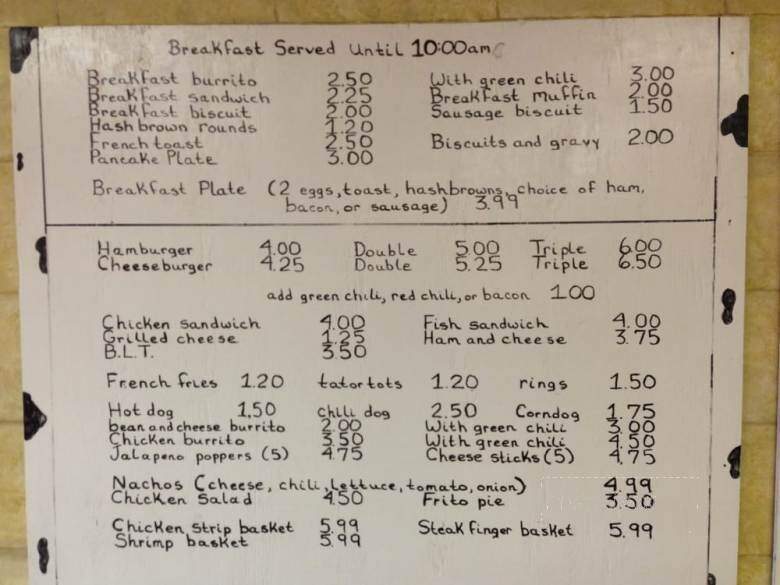 Breakfast Served Until 10:00am
Breakfast burrito 2.50 With green chili 3.00
Breakfast sandwich 2.25 Breakfast muffin 2.00
Breakfast biscuit 2.00 Sausage biscuit 1.50
Hash brown rounds 1.20
French toast 2.50 Biscuits and gravy 2.00
Pancake Plate 3.00
Breakfast Plate (2 eggs, toast, hashbrowns, choice of ham,
bacon, or sausage) 3.99
Hamburger 4.00 Double 5.00 Triple 6.00
Cheeseburger 4.25 Double 5.25 Triple 6.50
add green chili, red chili, or bacon 1.00
Chicken sandwich 4.00 Fish sandwich 4.00
Grilled cheese 1.25 Ham and cheese 3.75
B.L.T. 3.50
French fries 1.20 tator tots 1.20 rings 1.50
Hot dog 1.50 chili dog 2.50 Corndog 1.75
bean and cheese burrito 2.00 With green chili 3.00
Chicken burrito 3.50 With green chili 4.50
Jalapeno poppers (5) 4.75 Cheese sticks (5) 4.75
Nachos (cheese, chili, lettuce, tomato, onion) 4.99
Chicken Salad 4.50 Frito pie 3.50
Chicken strip basket 5.99 Steak finger basket 5.99
Shrimp basket 5.99